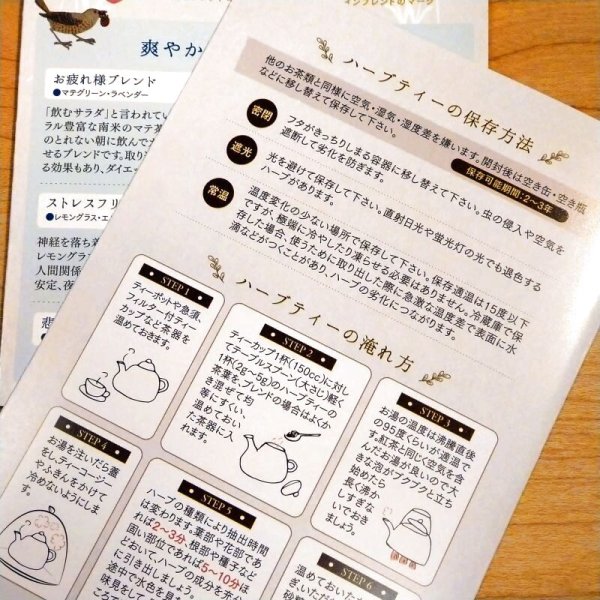 インフレントのマーク
爽やか
お疲れ様ブレンド
●マテグリーン・ラベンダー
「飲むサラダ」と言われてい
ラル豊富な南米のマテ茶
のとれない朝に飲んで
せるブレンドです。取り
る効果もあり、ダイエッ
ストレスフリ
●レモングラス・エ
神経を落ち着
レモングラ
人間関係
安定、夜
悲
ハーブティーの保存方法
他のお茶類と同様に空気・湿気・湿度差を嫌います。開封後は空き缶・空き瓶
などに移し替えて保存して下さい。
保存可能期間:2〜3年
密閉
フタがきっちりしまる容器に移し替えて下さい。虫の侵入や空気を
遮断して劣化を防ぎます。
遮光
光を避けて保存して下さい。直射日光や蛍光灯の光でも退色する
ハーブがあります。
常温
温度変化の少ない場所で保存して下さい。保存適温は15度以下
ですが、極端に冷やしたり凍らせる必要はありません。冷蔵庫で保
存した場合、使うために取り出した際に急激な温度差で表面に水
滴などがつくことがあり、ハーブの劣化につながります。
ハーブティーの淹れ方
STEP 1
ティーポットや急須、
フィルター付ティー
カップなど茶器を
温めておきます。
STEP 2
ティーカップ1杯(150cc)に対し
てテーブルスプーン(大さじ)軽く
1杯(2g〜5g)のハーブティーの
茶葉を、ブレンドの場合はよくか
き混ぜて均
等にすくい、
温めておい
た茶器に入
れます。
STEP 3
お湯の温度は沸騰直後
の95度くらいが適温で
す。紅茶と同じく空気を含
んだお湯が良いので大
きな泡がブクブクと立ち
始めたら
長く沸か
しすぎな
いでおき
ましょう。
STEP 4
お湯を注いだら蓋
をしティーコージー
やふきんをかけて
冷めないようにしま
す。
STEP 5
ハーブの種類により抽出時間
は変わります。葉部や花部であ
れば2〜3分、根部や種子など
固い部位であれば5〜10分ほ
どおいて、ハーブの成分を充分
に引き出しましょう。
途中で水色を見
味見をして
ころで
STEP 6
温めておいた
ぎ、いただ
砂糖